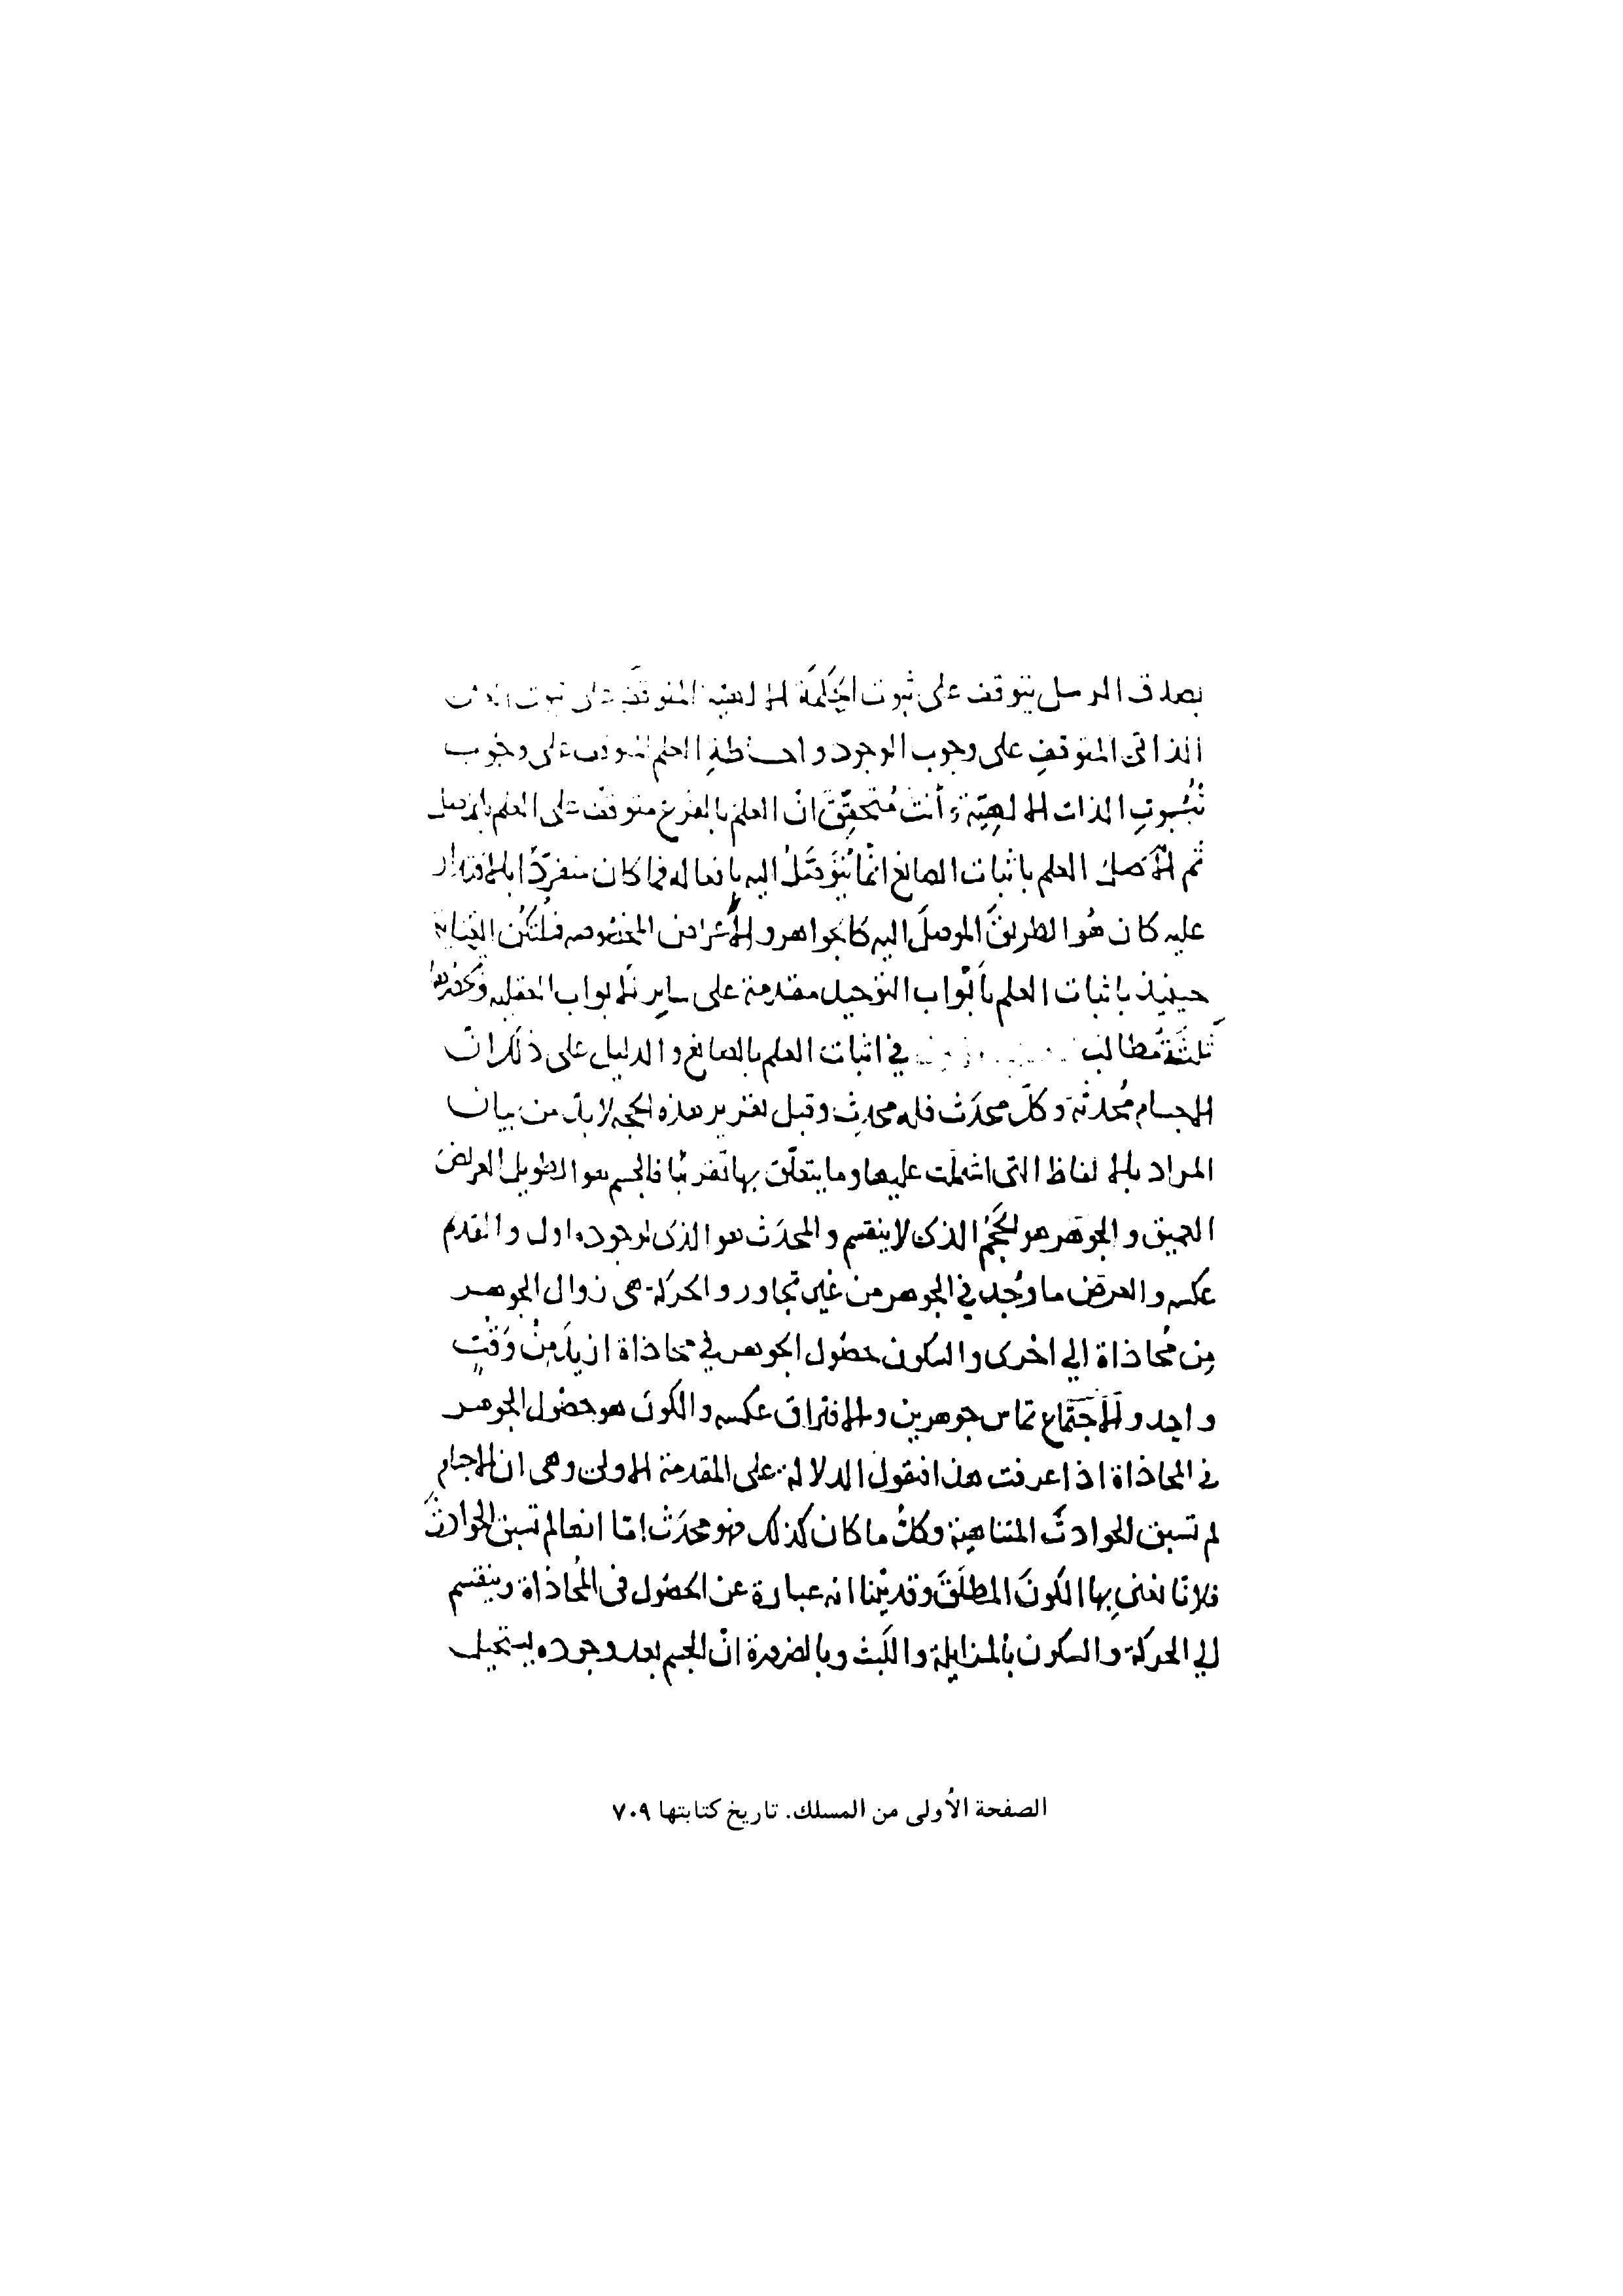 بصدق الرسل يتوقف على ثبوت الحِكمَة الالهية المتوقف على ثبوت
الذاتى المتوقفِ على وجوب الوجود واحاطةِ العلم المتوقف على وجوب
ثُبُوتِ الذات الالهِيّة وَأنتَ مُتحقِّقٌ انّ العلم بالفرع متوقف على العلم بالاصل
ثم الأصلُ العلم باثبات الصانع انّما يُتَوَصَّلُ اليه بافعاله فما كان متفرّدًا بالاقتدار
عليه كان هُو الطريقَ الموصلَ اليه كالجواهر والأعراض المخصوصه فلتكن
حينيذ باثبات العلم بأبواب التوحيد مقدمة على ساير الابواب العقليه
ثلثَةُ مطالب في اثبات العلم بالصانع والدليل على ذلك انّ
الاجسام مُحدثة وكلّ محدَث فله محدِث وقبل تقرير هذه الحجه لا بدّ من بيان
المراد بالالفاظ التى اشتملت عليها وما يتعلّق بها تقريبًا فالجسم هو الطويل العريض
العميق والجوهر هو الحَجْمُ الذى لا ينقسم والمحدَث هو الذى لوجوده اول والقديم
عكسه والعرَض ما وُجد في الجوهر من غير تجاور والحركة هى زوال الجوهر
مِن مُحاذاة الي اخرى والسكون حصُول الجوهر في محاذاة ازيدَ مِنْ وَقْتٍ
واحِد والاجتماع تماس جوهرين والافتراق عكسه والكونَ هو حصُول الجوهر
في المحاذاة اذا عرفت هذا فنقول الدلالة على المقدمة الاولى وهى ان الاجسام
لم تسبق الحوادثَ المتناهية وكلُّ ما كان كذلك فهو محدَث امّا انها لم تسبق الحوادثَ
فلانّا نعنى بِها الكونَ المطلَقَ وقد بيّنا انه عبارة عن الحصُول فى المُحاذاة وينقسم
الي الحركة والسكون بالمزايلة واللّبث وبالضرورة انّ الجسم بعد وجوده يستحيل
الصفحة الأولى من المسلك. تاريخ كتابتها ٧٠٩